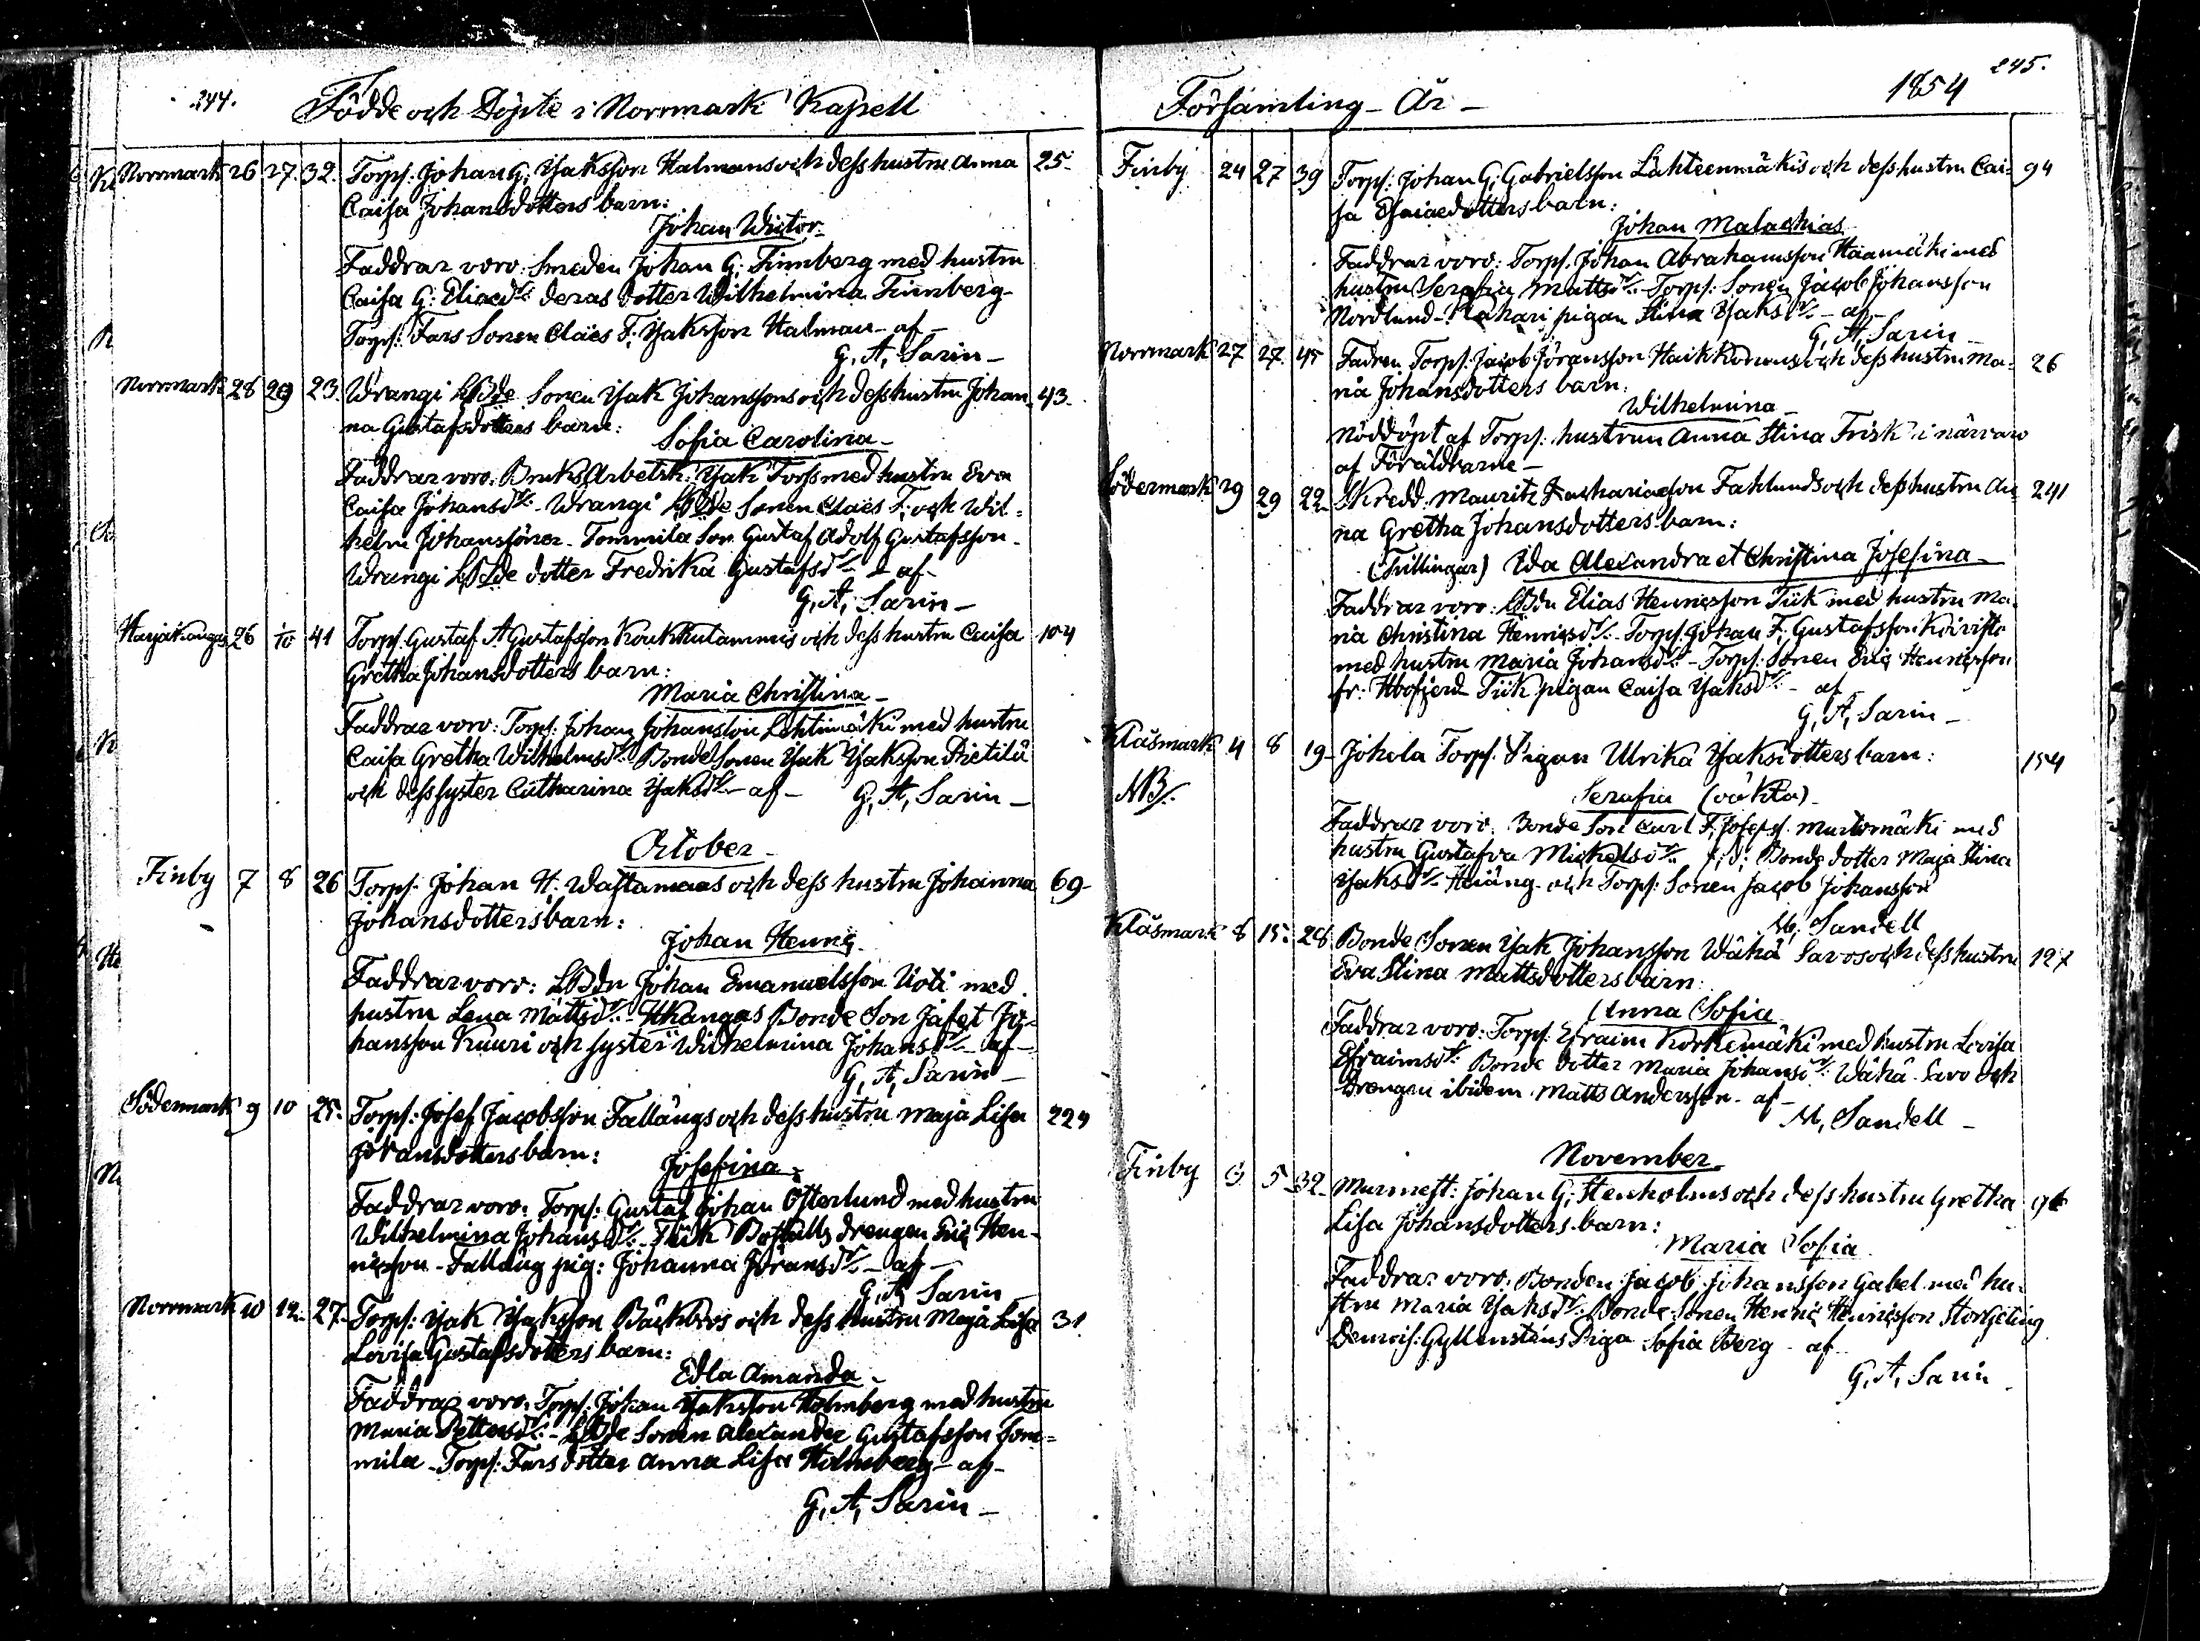 244.
Födde och Döpte i Norrmark Kapell
Norrmark 26 27 32. Torp: Johan G: Isaksson Halmans och dess hustru Anna 25.
Caisa Johansdotters barn:
Johan Wictor
Faddrar voro: Smeden Johan G: Finnberg med hustru
Caisa G: Eliaedr: deras dotter Wilhelmina Finnberg
Torp: Fars Sonen Claës F: Isaksson Halman - af -
G, A, Sarin -
Norrmark 28 29 23. Wrangi LBde Sonen Isak Johanssons och dess hustru Johan- 43.
na Gustafsdotters barn:
Sofia Carolina -
Faddrar voro: Bruks Arbetsk: Isak Forss med hustru Eva
Caisa Johansdr: Wrangi LBde Sonen Claës F: och Wil=
helm Johanssöner - Tommila Son Gustaf Adolf Gustafsson -
Wrangi LBde dotter Fredrika Gustafsdr: - af -
G, A, Sarin -
Harjakangas 26 10 41 Torp: Gustaf A Gustafsson Koukkutammis och dess hustru Caisa 104
Gretha Johansdotters barn:
Maria Christina -
Faddrar voro: Torp: Johan Johansson Lehtimäki med hustru
Caisa Gretha Wilhelmsdr: Bonde Sonen Isak Isaksson Pietilä
och dess syster Catharina Isaksdr: - af - G, A, Sarin -
October -
Finby 7 8 26 Torp: Johan H. Wastamaas och dess hustru Johanna 69-
Johansdotters barn:
Johan Henric
Faddrar voro: LBdn Johan Emanuelsson Uoti med
hustru Lena Mattsdr: - Ikangas Bonde Son Jafet Jo-
hansson Kuuri och syster Wilhelmina Johansdr: - af -
G, A, Sarin -
Södermark 9 10 25. Torp: Josef Jacobsson Fallängs och dess hustru Maja Lisa 224
Göransdotters barn:
Josefina
Faddrar voro: Torp: Gustaf Johan Österlund med hustru
Wilhelmina Johansdr: - Tiik Boställs drengen Eric Hen-
ricsson - Falläng pig: Johanna Göransdr: - af -
G, A, Sarin
Norrmark 10 12. 27. Torp: Isak Isaksson Bäckbros och dess hustru Maja Lisa 31
Lovisa Gustafsdotters barn:
Edla Amanda -
Faddrar voro: Torp: Johan Isaksson Holmberg med hustru
Maria Pettersdr: - LBde Sonen Alexander Gustafsson Tom=
mila - Torp: Fars dotter Anna Lisa Holmberg - af -
G, A, Sarin -
245.
Församling - År - 1854
Finby 24 27 39 Torp: Johan G: Gabrielsson Lähteenmäkis och dess hustru Cai= 94
sa Esaiaedotters barn:
Johan Malachias
Faddrar voro: Torp: Johan Abrahamsson Haamäki med
hustru Serafia Mattsdr: - Torp: Sonen Jacob Johansson
Nordlund - Rahari pigan Stina Isaksdr: - af -
G, A, Sarin -
Norrmark 27 27. 45 Fadren Torp: Jacob Göransson Haikkonens och dess hustru Ma= 26
ria Johansdotters barn:
Wilhelmina -
Nöddöpt af Torp: hustrun Anna Stina Frisk i närvaro
af Föräldrarne -
Södermark 29 29 22. Skredd: Mauritz Zachariaeson Fahlunds och dess hustru An 241
na Gretha Johansdotters barn:
(Tvillingar) Ida Alexandra et Christina Josefina -
Faddrar voro: LBdn Elias Henricsson Tiik med hustru Ma-
ria Christina Henricsdr: - Torp: Johan F: Gustafsson Koivisto
med hustru Maria Johansdr: - Torp: Sonen Eric Henricsson
fr: Hvofjerd Tiik pigan Caisa Isaksdr: - af
G, A, Sarin -
Klåsmark 4 8 19 - Johola Torp: Pigan Ulrika Isaksdotters barn: 154
NB:. Serafia (oäkta) -
Faddrar voro: Bonde Son Carl F: Josefss. Murtomäki med
hustru Gustafva Mickelsdr: f: d: Bonde dotter Maja Stina
Isaksdr: Haäng - och Torp: Sonen Jacob Johansson
M: Sandell
Klåsmark 8 15. 28 Bonde Sonen Isak Johansson Wähä Savos och dess hustru 127
Eva Stina Mattsdotters barn:
Anna Sofia
Faddrar voro: Torp: Efraim Korkemäki med hustru Lovisa
Efraimsdr: Bonde dotter Maria Johansdr: Wähä-Savo och
drengen ibidem Matts Andersson - af -
M, Sandell -
November -
Finby 3 5 32 - Murmest: Johan G: Stenholms och dess hustru Gretha 96
Lisa Johansdotters barn:
Maria Sofia
Faddrar voro: Bonden Jacob Johansson Gabel med hu-
stru Maria Isaksdr: Bonde Sonen Henric Henricsson Storgeting
Demois: Gyllensténs Piga Sofia Berg - af
G, A, Sarin